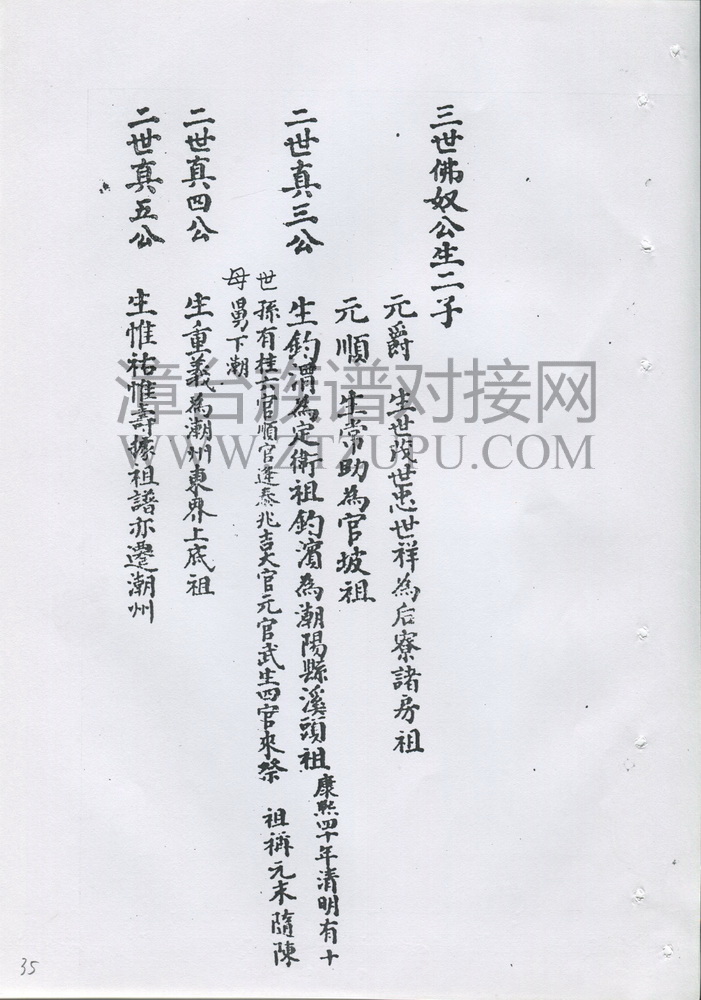 三世佛奴公生二子
元爵 生世茂世忠世祥為后寮諸房祖
元順 生常助為官坡祖
二世真三公 生釣渭為定衛祖釣濱為潮陽縣溪頭祖康熙四十年清明有十
世孫有桂六官順官逢泰兆吉大官元官武生四官來祭 祖稱元末隨陳
母舅下潮
二世真四公 生重義為潮州東界上底祖
二世真五公 生惟祐惟壽據祖譜亦遷潮州
漳台族谱对接网
WWW.ZTZUPU.COM
35